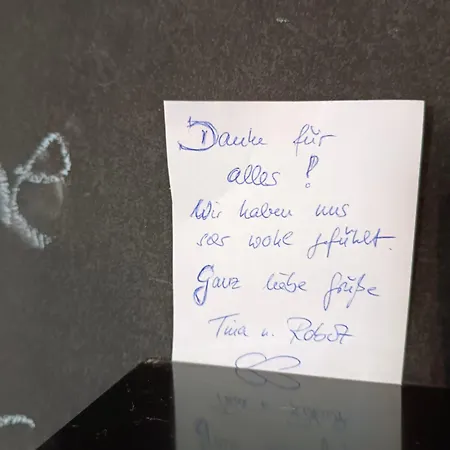 Danke für
alles!
Wir haben uns
wohl gefühlt.
Ganz liebe Grüße
Tina u. Robert